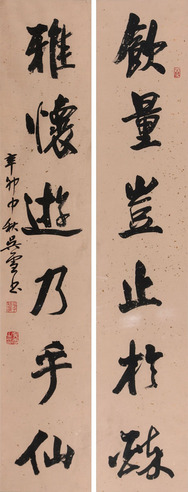 飲量豈止於醉
雅懷遊乃乎仙
辛卯中秋吳雲書